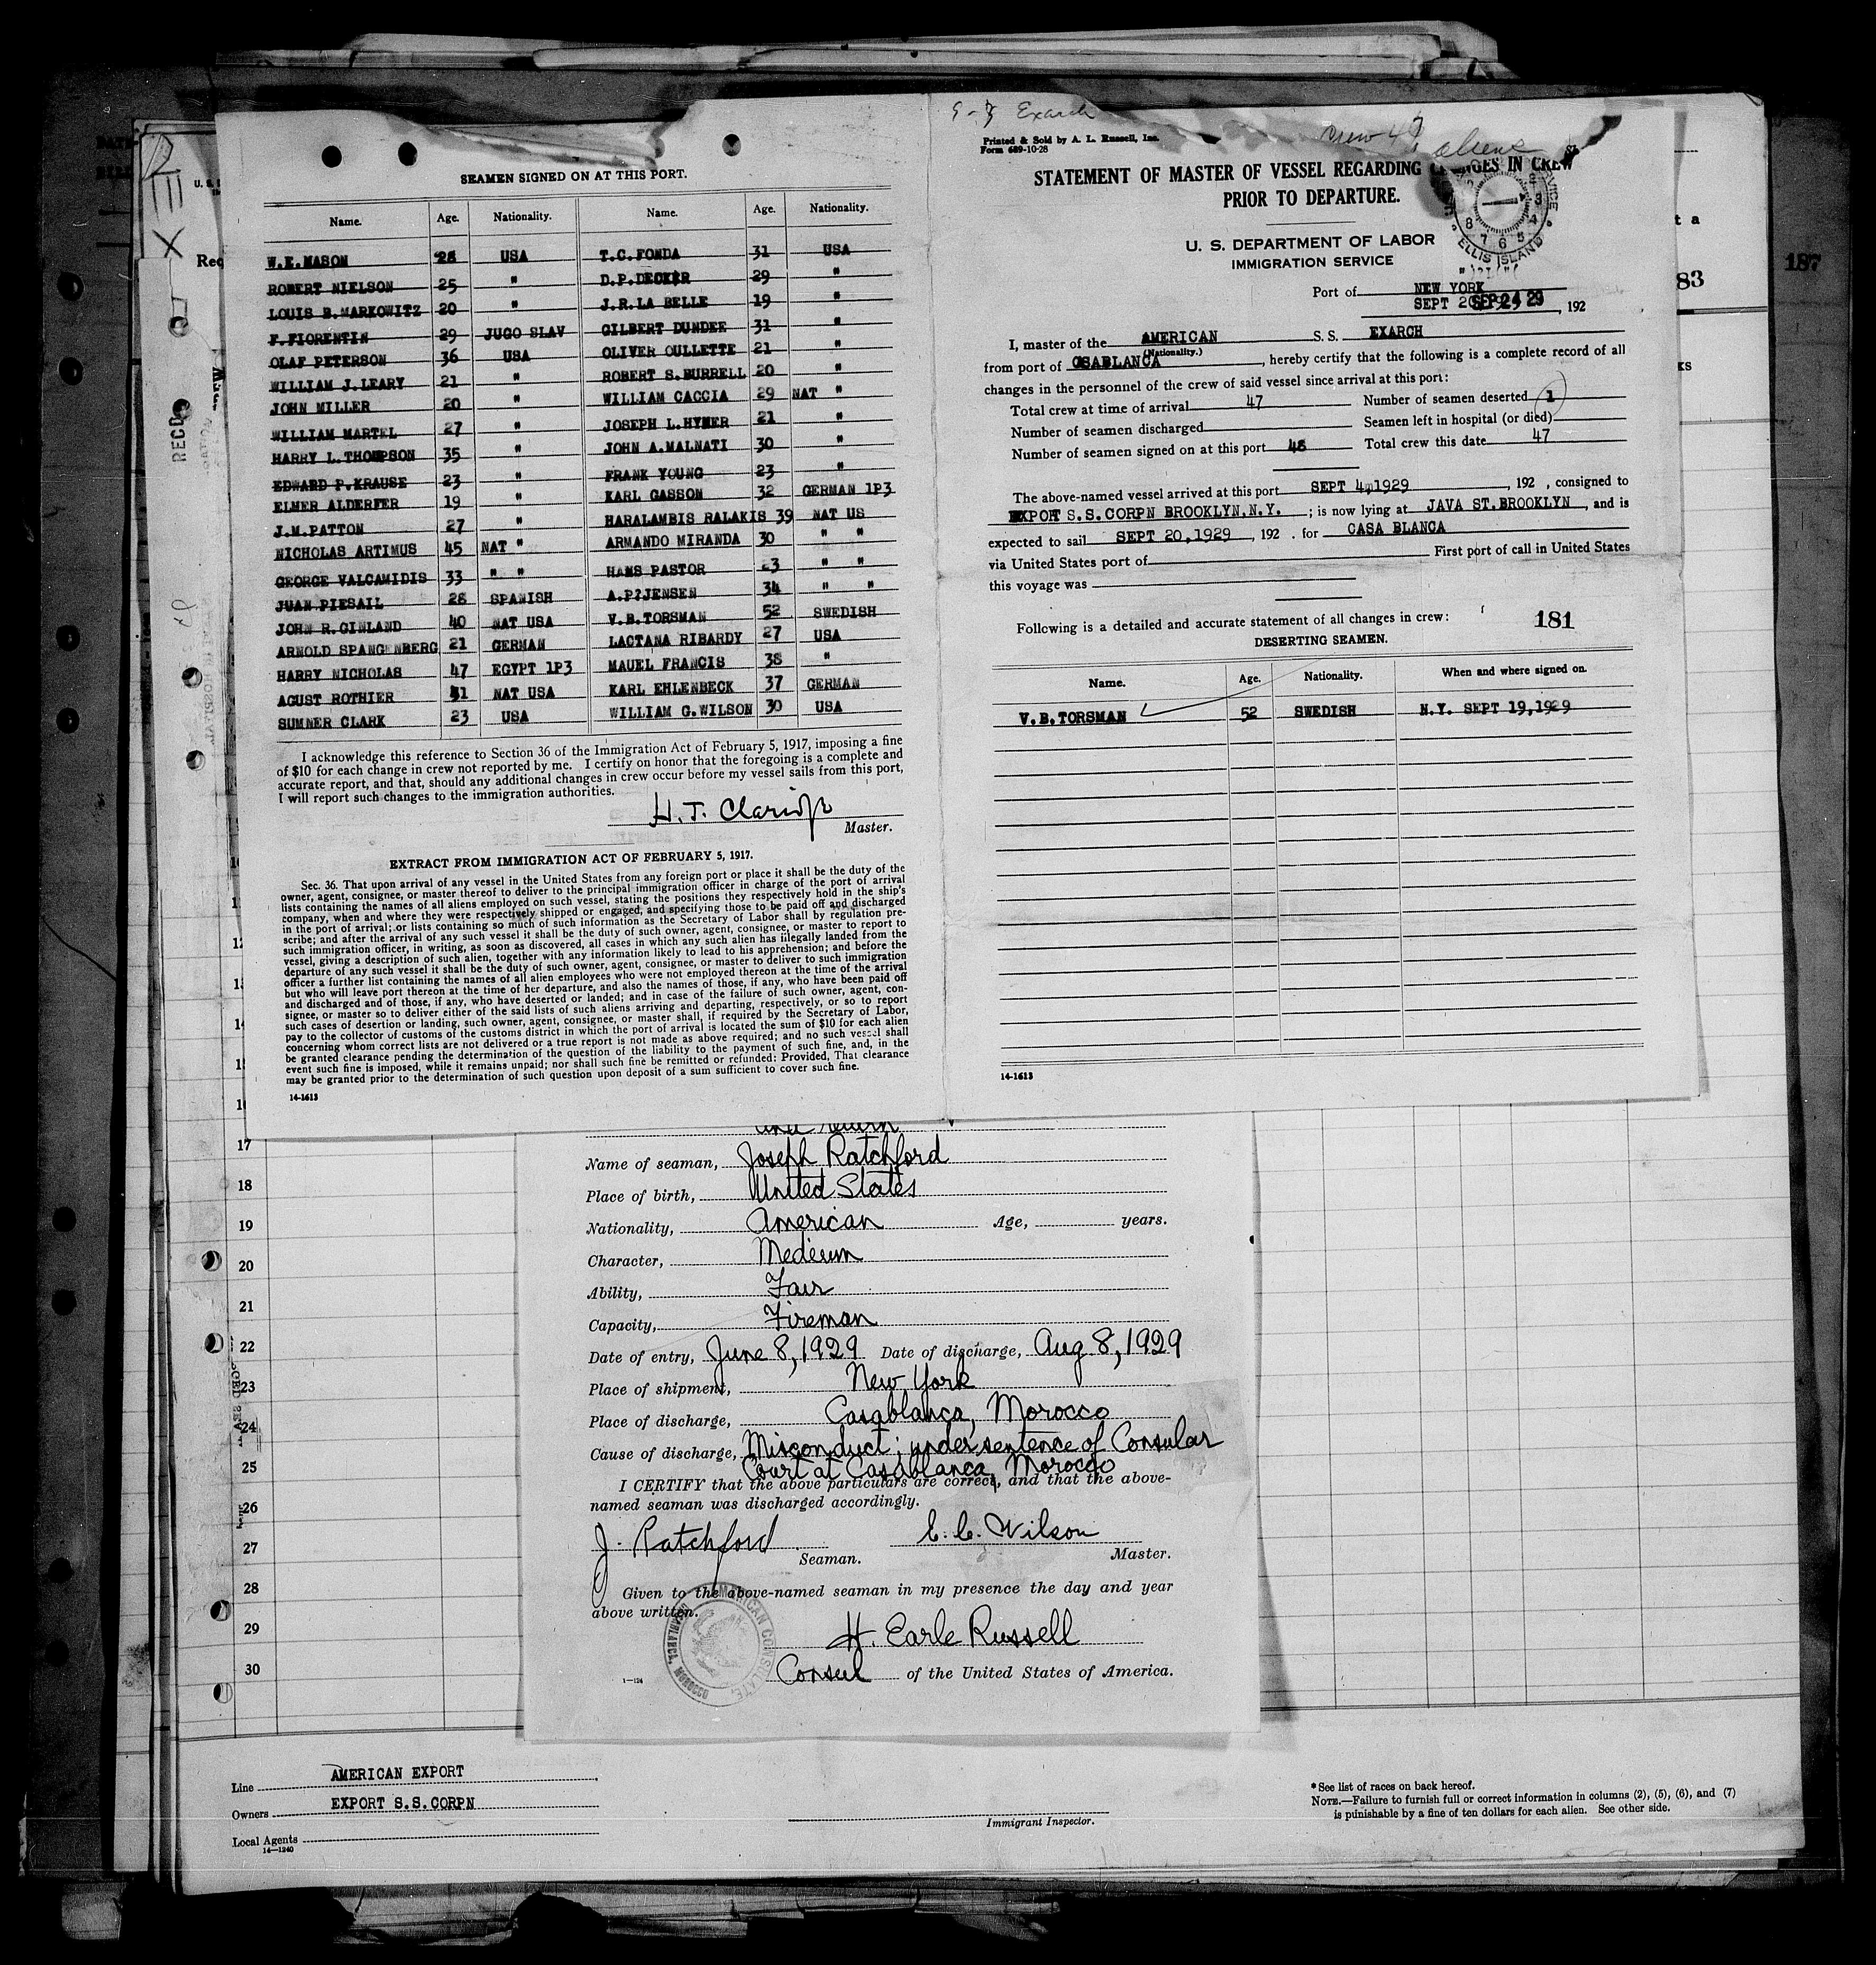 SEAMEN SIGNED ON AT THIS PORT.
Name. Age. Nationality. Name. Age. Nationality.
W.E.MASON 28 USA T.C.FONDA 31 USA
ROBERT NIELSON 25 " D.P.DECKER 29 "
LOUIS B.MARKOWITZ 20 " J.R.LA BELLE 19 "
F.FIORENTIN 29 JUGO SLAV GILBERT DUNDEE 31 "
OLAF PETERSON 36 USA OLIVER OULLETTE 21 "
WILLIAM J.LEARY 21 " ROBERT S.BURRELL 20 "
JOHN MILLER 20 " WILLIAM CACCIA 29 NAT "
WILLIAM MARTEL 27 " JOSEPH L.HYMER 21 "
HARRY L.THOMPSON 35 " JOHN A.MALNATI 30 "
EDWARD P.KRAUSE 23 " FRANK YOUNG 23 "
ELMER ALDERFER 19 " KARL GASSON 32 GERMAN 1P3
J.M.PATTON 27 " HARALAMBIS RALAKIS 39 NAT US
NICHOLAS ARTIMUS 45 NAT " ARMANDO MIRANDA 30 " "
GEORGE VALCAMIDIS 33 " " HANS PASTOR 23 " "
JUAN PIESAIL 28 SPANISH A.P?JENSEN 34 " "
JOHN R.GINLAND 40 NAT USA V.B.TORSMAN 52 SWEDISH
ARNOLD SPANGENBERG 21 GERMAN LACTANA RIBARDY 27 USA
HARRY NICHOLAS 47 EGYPT 1P3 MAUEL FRANCIS 38 "
AGUST ROTHIER 41 NAT USA KARL EHLENBECK 37 GERMAN
SUMNER CLARK 23 USA WILLIAM G.WILSON 30 USA
I acknowledge this reference to Section 36 of the Immigration Act of February 5, 1917, imposing a fine
of $10 for each change in crew not reported by me. I certify on honor that the foregoing is a complete and
accurate report, and that, should any additional changes in crew occur before my vessel sails from this port,
I will report such changes to the immigration authorities.
H.T. Claridge
Master.
EXTRACT FROM IMMIGRATION ACT OF FEBRUARY 5, 1917.
Sec. 36. That upon arrival of any vessel in the United States from any foreign port or place it shall be the duty of the
owner, agent, consignee, or master thereof to deliver to the principal immigration officer in charge of the port of arrival
lists containing the names of all aliens employed on such vessel, stating the positions they respectively hold in the ship's
company, when and where they were respectively shipped or engaged, and specifying those to be paid off and discharged
in the port of arrival; or lists containing so much of such information as the Secretary of Labor shall by regulation pre-
scribe; and after the arrival of any such vessel it shall be the duty of such owner, agent, consignee, or master to report to
such immigration officer, in writing, as soon as discovered, all cases in which any such alien has illegally landed from the
vessel, giving a description of such alien, together with any information likely to lead to his apprehension; and before the
departure of any such vessel it shall be the duty of such owner, agent, consignee, or master to deliver to such immigration
officer a further list containing the names of all alien employees who were not employed thereon at the time of the arrival
but who will leave port thereon at the time of her departure, and also the names of those, if any, who have been paid off
and discharged and of those, if any, who have deserted or landed; and in case of the failure of such owner, agent, con-
signee, or master so to deliver either of the said lists of such aliens arriving and departing, respectively, or so to report
such cases of desertion or landing, such owner, agent, consignee, or master shall, if required by the Secretary of Labor,
pay to the collector of customs of the customs district in which the port of arrival is located the sum of $10 for each alien
concerning whom correct lists are not delivered or a true report is not made as above required; and no such vessel shall
be granted clearance pending the determination of the question of the liability to the payment of such fine, and, in the
event such fine is imposed, while it remains unpaid; nor shall such fine be remitted or refunded: Provided, That clearance
may be granted prior to the determination of such question upon deposit of a sum sufficient to cover such fine.
14-1613
Exarch
Crew 47 aliens
Printed & Sold by A. L. Russell, Inc.
Form 689-10-28
STATEMENT OF MASTER OF VESSEL REGARDING CHANGES IN CREW
PRIOR TO DEPARTURE.
ELLIS ISLAND
U. S. DEPARTMENT OF LABOR
IMMIGRATION SERVICE
Port of NEW YORK
SEPT 20 SEP 24 29, 192
I, master of the AMERICAN S. S. EXARCH
(Nationality.)
from port of CSABLANCA, hereby certify that the following is a complete record of all
changes in the personnel of the crew of said vessel since arrival at this port:
Total crew at time of arrival 47 Number of seamen deserted 1
Number of seamen discharged Seamen left in hospital (or died)
Number of seamen signed on at this port 48 Total crew this date 47
The above-named vessel arrived at this port SEPT 4,1929, 192 , consigned to
EXPORT S.S.CORPN BROOKLYN.N.Y. ; is now lying at JAVA ST.BROOKLYN, and is
expected to sail SEPT 20,1929, 192 . for CASA BLANCA
via United States port of First port of call in United States
this voyage was
Following is a detailed and accurate statement of all changes in crew: 181
DESERTING SEAMEN.
Name. Age. Nationality. When and where signed on.
V.B.TORSMAN 52 SWEDISH N.Y. SEPT 19,1929
14-1613
187
83
RECD
Name of seaman, Joseph Ratchford
Place of birth, United States
Nationality, American Age, years.
Character, Medium
Ability, Fair
Capacity, Fireman
Date of entry, June 8, 1929 Date of discharge, Aug 8, 1929
Place of shipment, New York
Place of discharge, Casablanca, Morocco
Cause of discharge, Misconduct; under sentence of Consular
Court at Casablanca, Morocco
I CERTIFY that the above particulars are correct, and that the above-
named seaman was discharged accordingly.
J. Ratchford E. C. Wilson
Seaman. Master.
Given to the above-named seaman in my presence the day and year
above written.
AMERICAN CONSULATE, CASABLANCA, MOROCCO
H. Earle Russell
Consul of the United States of America.
1—124
17
18
19
20
21
22
23
24
25
26
27
28
29
30
Line AMERICAN EXPORT
Owners EXPORT S.S.CORPN
Local Agents
14—1240
Immigrant Inspector.
* See list of races on back hereof.
NOTE.—Failure to furnish full or correct information in columns (2), (5), (6), and (7)
is punishable by a fine of ten dollars for each alien. See other side.